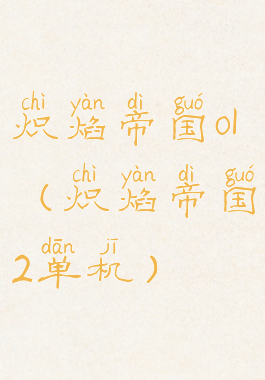 chì yàn dì guó
炽焰帝国01
chì yàn dì guó
(炽焰帝国
dān jī
2单机)